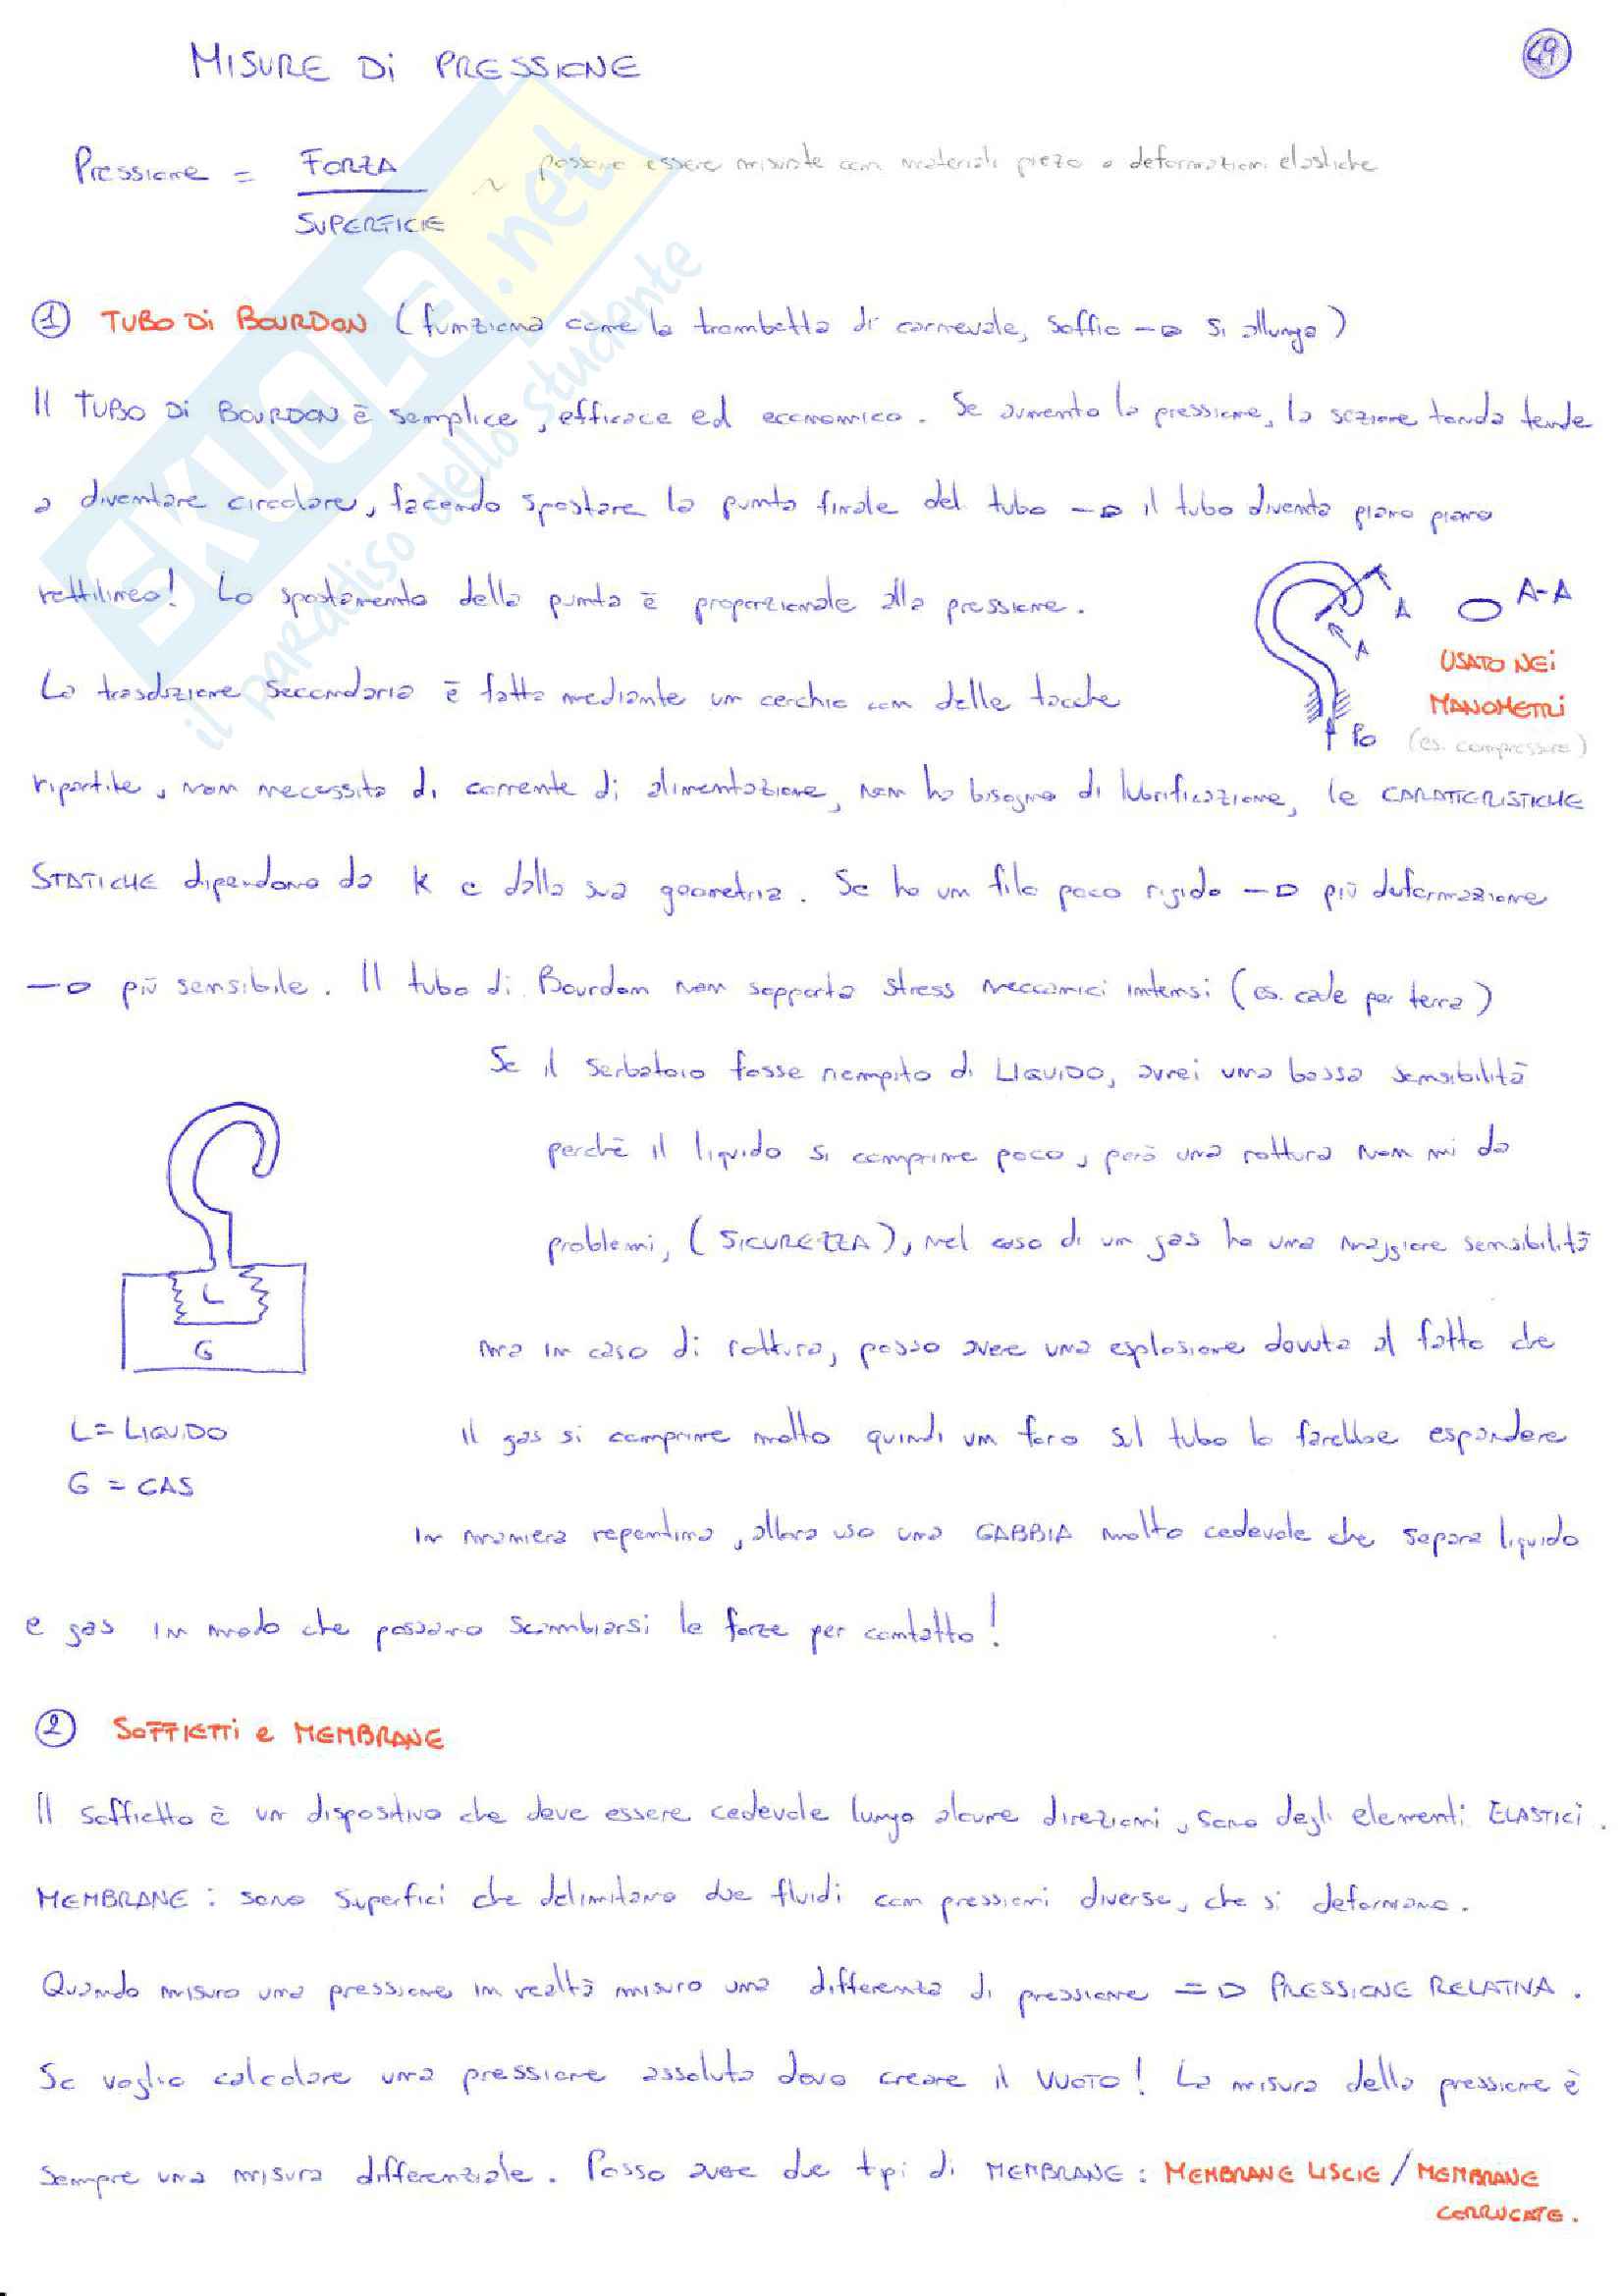 MISURE Di PRESSIONE
49
Pressione = FORZA
SUPERFICIE
~ possono essere misurate con materiali piezo o deformazioni elastiche
1 TUBO Di BOURDON (funziona come la trombetta di carnevale, soffio → si allunga)
Il TUBO Di BOURDON è semplice, efficace ed economico. Se aumento la pressione, la sezione tonda tende
a diventare circolare, facendo spostare la punta finale del tubo → il tubo diventa piano piano
rettilineo! Lo spostamento della punta è proporzionale alla pressione.
A
A
A-A
USATO NEi
MANOMETRi
(es. compressore)
P0
La trasduzione secondaria è fatta mediante un cerchio con delle tacche
ripartite, non necessita di corrente di alimentazione, non ha bisogno di lubrificazione, le CARATTERISTICHE
STATICHE dipendono da K e dalla sua geometria. Se ho un filo poco rigido → più deformazione
→ più sensibile. Il tubo di Bourdon non sopporta stress meccanici intensi (es. cade per terra)
Se il serbatoio fosse riempito di LIQUIDO, avrei una bassa sensibilità
perchè il liquido si comprime poco, però una rottura non mi da
problemi, (SICUREZZA), nel caso di un gas ho una maggiore sensibilità
ma in caso di rottura, posso avere una esplosione dovuta al fatto che
il gas si comprime molto quindi un foro sul tubo lo farebbe espandere
in maniera repentina, allora uso una GABBIA molto cedevole che separa liquido
e gas in modo che possano scambiarsi le forze per contatto!
L
G
L = LIQUIDO
G = GAS
2 SOFFIETTi e MEMBRANE
Il soffietto è un dispositivo che deve essere cedevole lungo alcune direzioni, sono degli elementi ELASTICI.
MEMBRANE: sono superfici che delimitano due fluidi con pressioni diverse, che si deformano.
Quando misuro una pressione in realtà misuro una differenza di pressione => PRESSIONE RELATIVA.
Se voglio calcolare una pressione assoluta devo creare il VUOTO! La misura della pressione è
sempre una misura differenziale. Posso avere due tipi di MEMBRANE: MEMBRANE LISCIE / MEMBRANE
CORRUGATE.
SKUOLA.net
il paradiso dello studente